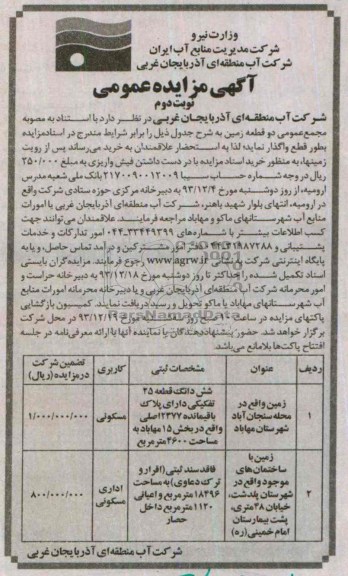 وزارت نیرو
شرکت مدیریت منابع آب ایران
شرکت آب منطقه‌ای آذربایجان غربی
آگهی مزایده عمومی
نوبت دوم
شرکت آب منطقه‌ای آذربایجان غربی در نظر دارد با استناد به مصوبه
مجمع عمومی دو قطعه زمین به شرح جدول ذیل را برابر شرایط مندرج در اسناد مزایده
بطور قطع واگذار نماید؛ لذا به استحضار علاقمندان به خرید می‌رساند پس از رویت
زمینها، به منظور خرید اسناد مزایده با در دست داشتن فیش واریزی به مبلغ ۲۵۰/۰۰۰
ریال در وجه شماره حساب سیبا ۲۱۷۰۰۹۰۰۱۲۰۰۹ بانک ملی شعبه مدرس
ارومیه، از روز دوشنبه مورخ ۹۳/۱۲/۴ به دبیرخانه مرکزی حوزه ستادی شرکت واقع
در ارومیه، انتهای بلوار شهید باهنر، شرکت آب منطقه‌ای آذربایجان غربی یا امورات
منابع آب شهرستانهای ماکو و مهاباد مراجعه فرمایند. علاقمندان می‌توانند جهت
کسب اطلاعات بیشتر با شماره‌های ۰۴۴-۳۳۴۴۹۳۹۹ امور تدارکات و خدمات
پشتیبانی و امور مشترکین و درآمد تماس حاصل، و یا به
پایگاه اینترنتی شرکت به نشانی www.agrw.ir رجوع فرمایند. مزایده‌گران بایستی
اسناد تکمیل شده را حداکثر تا روز دوشنبه مورخ ۹۳/۱۲/۱۸ به دبیرخانه حراست و
امور محرمانه شرکت آب منطقه‌ای آذربایجان غربی و یا دبیرخانه محرمانه امورات منابع
آب شهرستانهای مهاباد یا ماکو تحویل و رسید دریافت نمایند. کمیسیون بازگشایی
پاکتهای مزایده در ساعت ۱۰ صبح روز مورخ ۹۳/۱۲/۱۹ در محل شرکت
برگزار خواهد شد. حضور پیشنهاددهندگان یا نماینده آنها با ارائه معرفی‌نامه در جلسه
افتتاح پاکت‌ها بلامانع می‌باشد.
ردیف عنوان مشخصات ثبتی کاربری تضمین شرکت در مزایده (ریال)
۱ زمین واقع در محله سنجان آباد شهرستان مهاباد شش دانگ قطعه ۲۵ تفکیکی دارای پلاک باقیمانده ۲۳۷۷ اصلی واقع در بخش ۱۵ مهاباد به مساحت ۴۶۰۰ مترمربع مسکونی ۱/۰۰۰/۰۰۰/۰۰۰
۲ زمین با ساختمان‌های موجود واقع در شهرستان پلدشت، خیابان ۳۸ متری، پشت بیمارستان امام خمینی (ره) فاقد سند ثبتی (اقرار و ترک دعاوی) به مساحت ۱۸۴۹۶ مترمربع و اعیانی ۱۱۲۰ مترمربع داخل حصار اداری مسکونی ۸۰۰/۰۰۰/۰۰۰
شرکت آب منطقه‌ای آذربایجان غربی